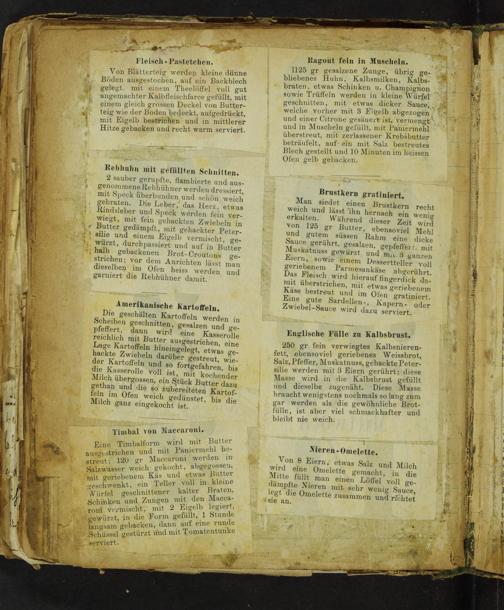 Fleisch-Pastetchen.
Von Blätterteig werden kleine dünne
Böden ausgestochen, auf ein Backblech
gelegt, mit einem Theelöffel voll gut
angemachter Kalbfleischfarce gefüllt, mit
einem gleich grossen Deckel von Butter-
teig wie der Boden bedeckt, aufgedrückt,
mit Eigelb bestrichen und in mittlerer
Hitze gebacken und recht warm serviert.
Rebhuhn mit gefüllten Schnitten.
2 sauber gerupfte, flambierte und aus-
genommene Rebhühner werden dressiert,
mit Speck überbunden und schön weich
gebraten. Die Leber, das Herz, etwas
Rindsleber und Speck werden fein ver-
wiegt, mit fein gehackten Zwiebeln in
Butter gedämpft, mit gehackter Peter-
silie und einem Eigelb vermischt, ge-
würzt, durchpassiert und auf in Butter
halb gebackenen Brot-Croutons ge-
strichen; vor dem Anrichten lässt man
dieselben im Ofen heiss werden und
garniert die Rebhühner damit.
Amerikanische Kartoffeln.
Die geschälten Kartoffeln werden in
Scheiben geschnitten, gesalzen und ge-
pfeffert, dann wird eine Kasserolle
reichlich mit Butter ausgestrichen, eine
Lage Kartoffeln hineingelegt, etwas ge-
hackte Zwiebeln darüber gestreut, wie-
der Kartoffeln und so fortgefahren, bis
die Kasserolle voll ist, mit kochender
Milch übergossen, ein Stück Butter dazu
gethan und die so zubereiteten Kartof-
feln im Ofen weich gedünstet, bis die
Milch ganz eingekocht ist.
Timbal von Maccaroni.
Eine Timbalform wird mit Butter
ausgestrichen und mit Paniermehl be-
streut; 120 gr Maccaroni werden in
Salzwasser weich gekocht, abgegossen,
mit geriebenem Käs und etwas Butter
geschwenkt, ein Teller voll in kleine
Würfel geschnittener kalter Braten,
Schinken und Zungen mit den Macca-
roni vermischt, mit 2 Eigelb legiert,
gewürzt, in die Form gefüllt, 1 Stunde
langsam gebacken, dann auf eine runde
Schüssel gestürzt und mit Tomatentunke
serviert.
Ragout fein in Muscheln.
1125 gr gesalzene Zunge, übrig ge-
bliebenes Huhn, Kalbsmilken, Kalbs-
braten, etwas Schinken u. Champignon
sowie Trüffeln werden in kleine Würfel
geschnitten, mit etwas dicker Sauce,
welche vorher mit 3 Eigelb abgezogen
und einer Citrone gesäuert ist, vermengt
und in Muscheln gefüllt, mit Paniermehl
überstreut, mit zerlassener Krebsbutter
beträufelt, auf ein mit Salz bestreutes
Blech gestellt und 10 Minuten im heissen
Ofen gelb gebacken.
Brustkern gratiniert.
Man siedet einen Brustkern recht
weich und lässt ihn hernach ein wenig
erkalten. Während dieser Zeit wird
von 125 gr Butter, ebensoviel Mehl
und gutem süssen Rahm eine dicke
Sauce gerührt, gesalzen, gepfeffert, mit
Muskatnuss gewürzt und mit 3 ganzen
Eiern, sowie einem Dessertteller voll
geriebenem Parmesankäse abgerührt.
Das Fleisch wird hierauf fingerdick da-
mit überstrichen, mit etwas geriebenem
Käse bestreut und im Ofen gratiniert.
Eine gute Sardellen-, Kapern- oder
Zwiebel-Sauce wird dazu serviert.
Englische Fülle zu Kalbsbrust.
250 gr fein verwiegtes Kalbsnieren-
fett, ebensoviel geriebenes Weissbrot,
Salz, Pfeffer, Muskatnuss, gehackte Peter-
silie werden mit 3 Eiern gerührt; diese
Masse wird in die Kalbsbrust gefüllt
und dieselbe zugenäht. Diese Masse
braucht wenigstens nochmals so lang zum
gar werden als die gewöhnliche Brot-
fülle, ist aber viel schmackhafter und
bleibt nie weich.
Nieren-Omelette.
Von 8 Eiern, etwas Salz und Milch
wird eine Omelette gemacht, in die
Mitte füllt man einen Löffel voll ge-
dämpfte Nieren mit sehr wenig Sauce,
legt die Omelette zusammen und richtet
sie an.